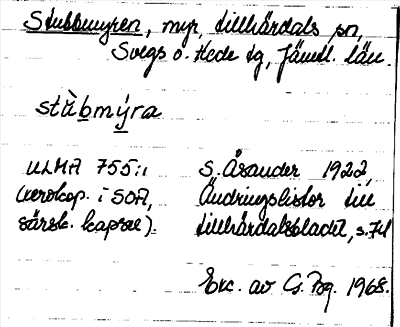 Stubbmyren, myr, Lillhärdals sn,
Svegs o. Hede tg, Jämtl. län.
stùbmýra
ULMA 755:1 S. Åsander 1922,
(xerokop. i SOA, Ändringslistor till
särsk. kapsel). Lillhärdalsbladet, s. 74
Exc. av G. Bg. 1968.